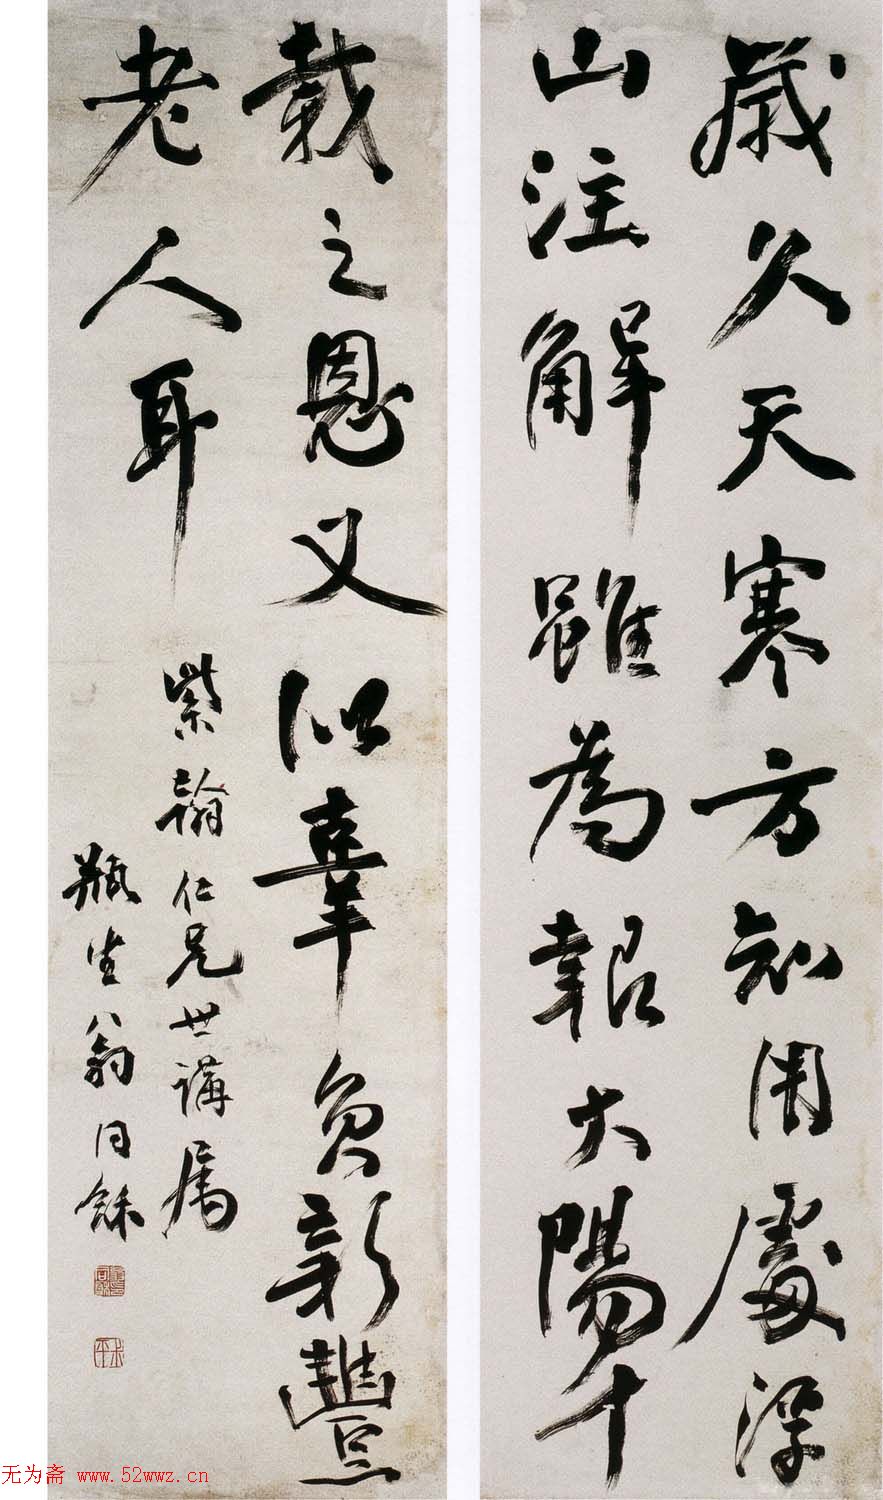 歲久天寒方知用處浮
山注解雖為報大陽十
載之恩又似辜負新豐
老人耳
紫翰仁兄世講屬
瓶生翁同龢
无为斋 www.52wwz.cn